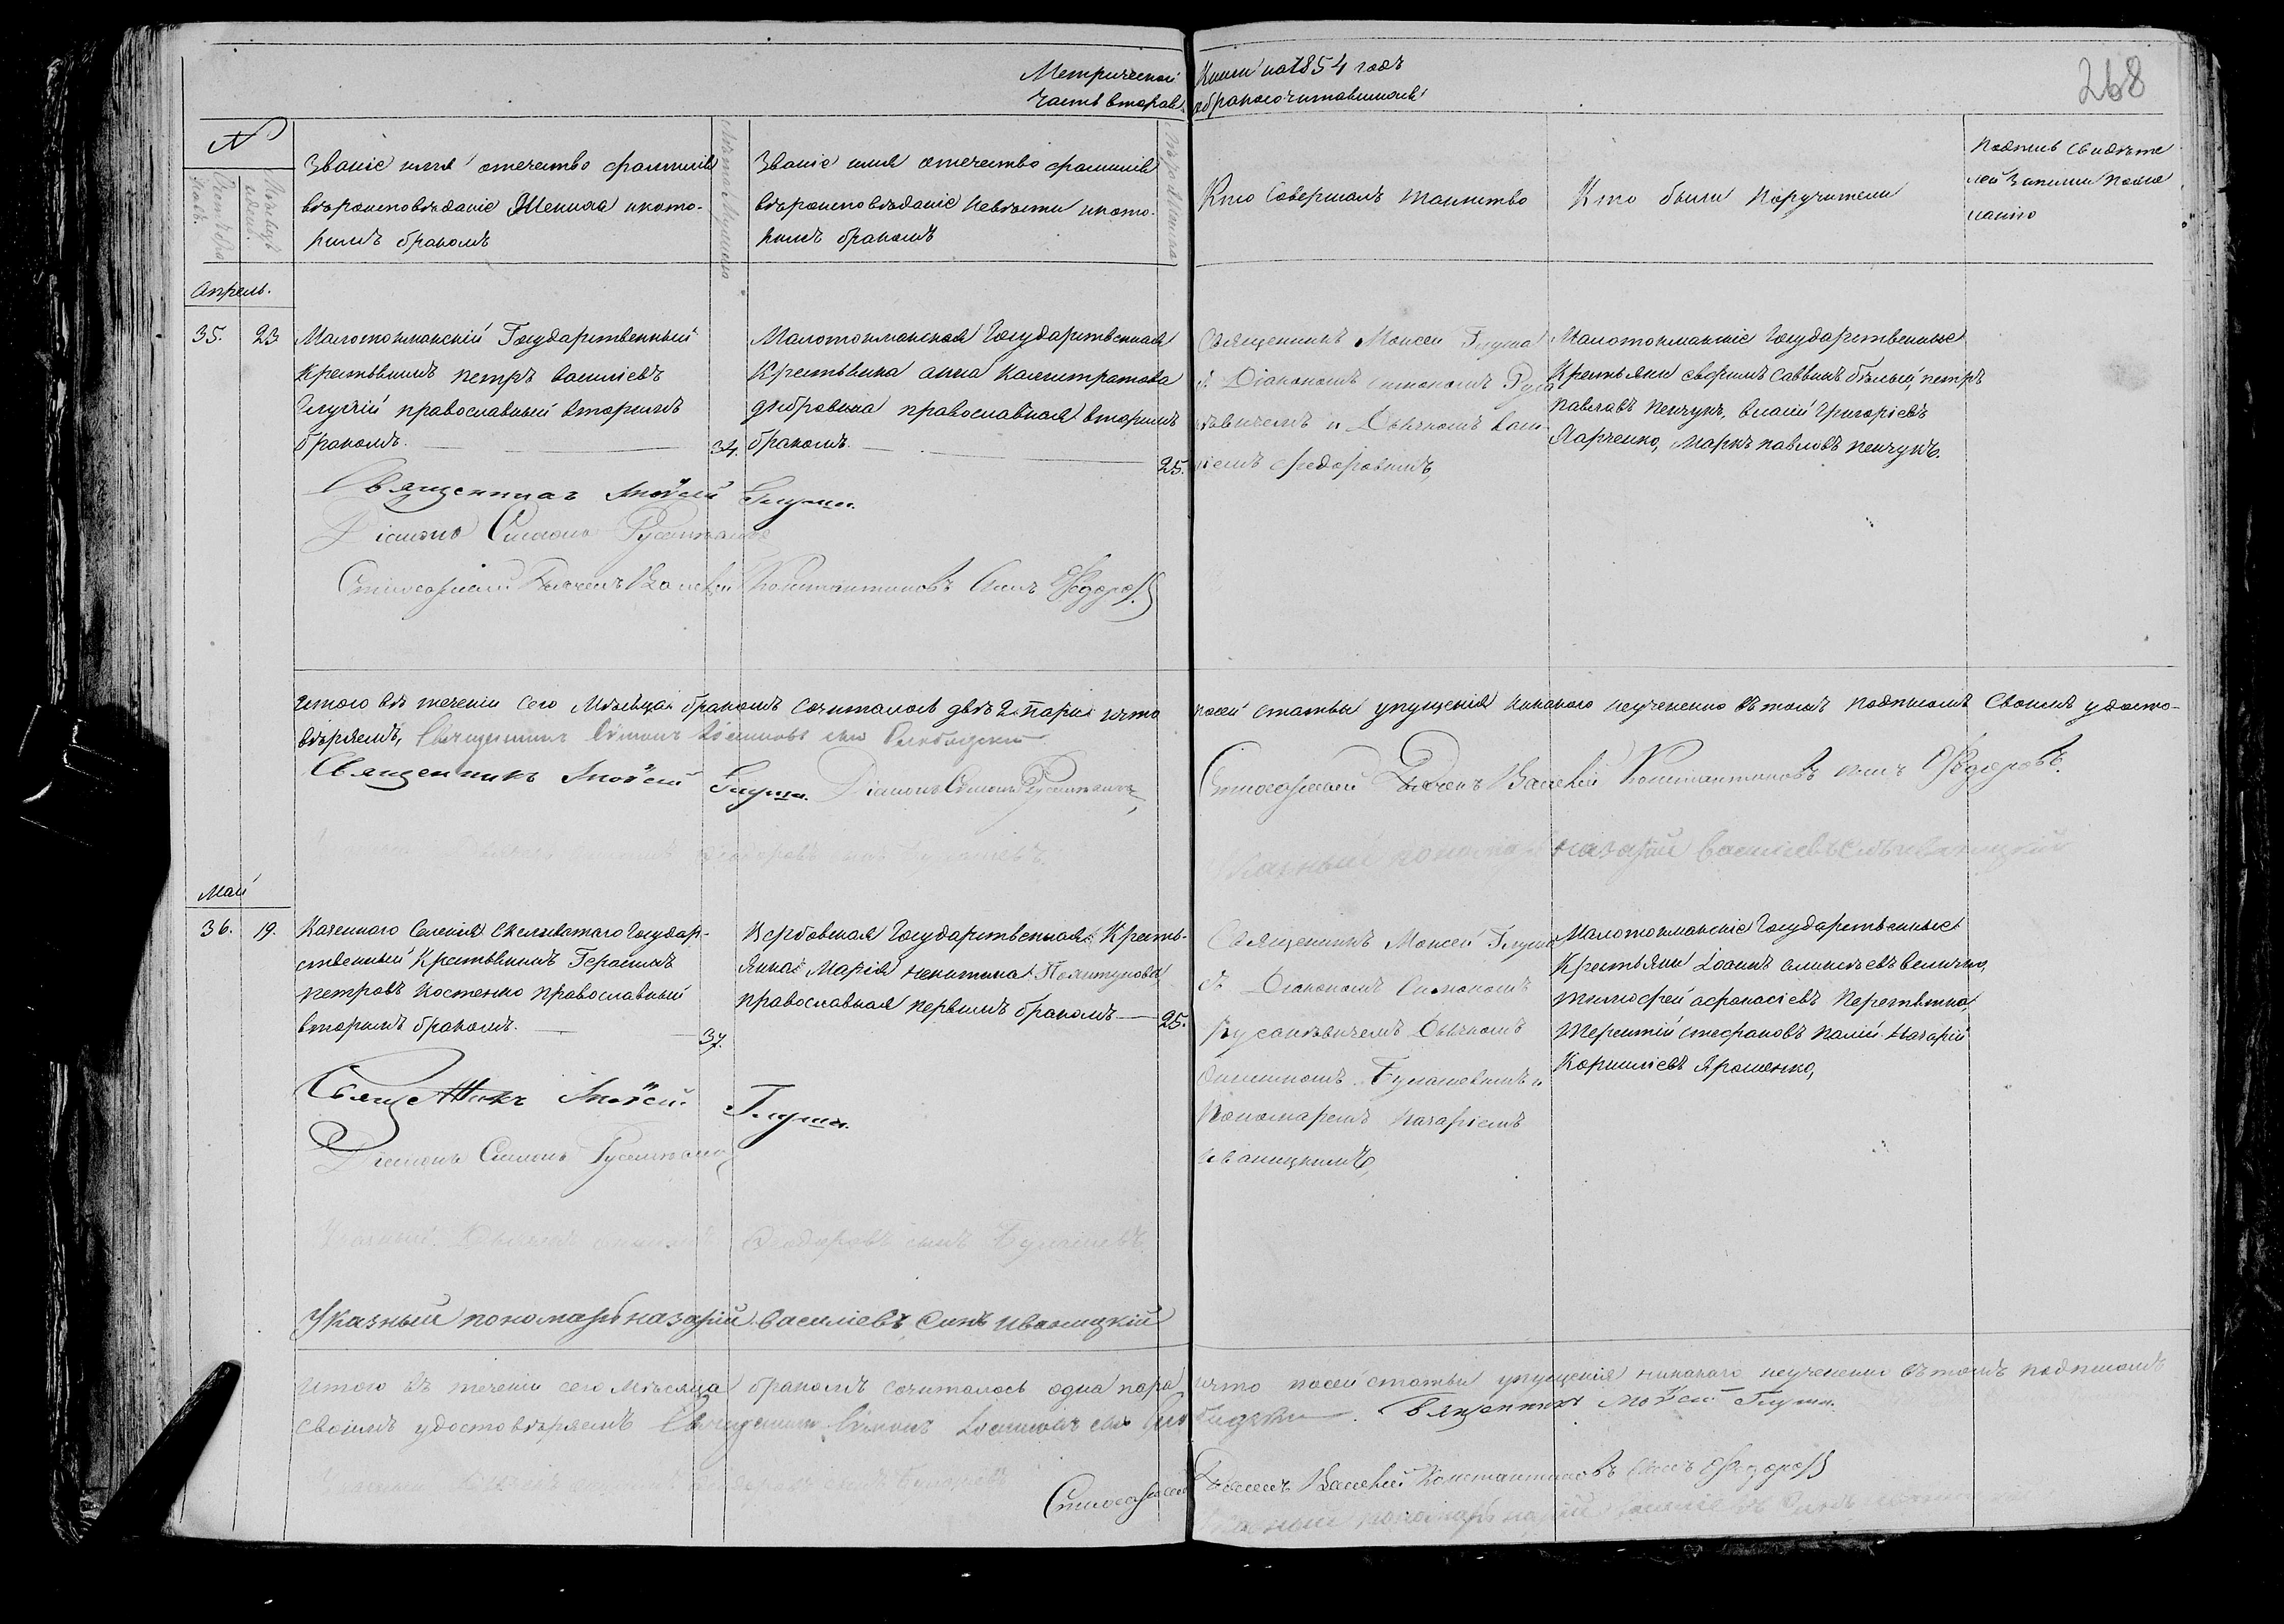 Метрической книги на 1854 годъ
268
Часть вторая о бракосочитавшихся
№
Званіе имя отечество фамилія
вѣроисповѣданіе Жениха и кото-
рымъ бракомъ
Лѣта Жениха
Званіе имя отечество фамилія
вѣроисповѣданіе невѣсты и кото-
рымъ бракомъ
Лѣта
Кто Совершалъ таинство
Кто были Поручители
Подпись Свидѣте
лей записи пожела
нію
Апрель.
35.
23
Малотокмакскій Государственный
Крестьянинъ Петръ Василіевъ
православный вторымъ
бракомъ.
34.
Малотокмакская Государственная
Крестьянка Анна Калистратова
православная вторымъ
бракомъ.
25.
Священникъ Моисей Глуша
съ Діакономъ Симономъ
и Дьячкомъ Васи-
ліемъ Федоровымъ,
Малотокмакскіе Государственные
Крестьяне Саввинъ Бѣлый, Петръ
Павловъ Пенчукъ, Власій Григоріевъ
Марченко, Маркъ Павловъ Пенчукъ.
Священникъ Моѵсей Глуша.
Діаконъ Симонъ
Стихарный Дьячекъ Василій Константиновъ Сынъ Ѳедоровъ
Итого въ теченіи сего Мѣсяца бракомъ Сочиталось двѣ 2 пары и что посей статьи упущенія никакого неучененно въ томъ подписомъ Своимъ удосто-
вѣряемъ, Священникъ Симонъ Іоанновъ сынъ
Священникъ Моѵсей Глуша. Діаконъ Симонъ
Стихарный Дьячекъ Василій Константиновъ сынъ Ѳедоровъ.
Указный пономарь Назарій Василіевъ Сынъ Иваницкій
Май
36.
19.
Казенного Селенія Скелеватаго Государ-
ственный Крестьянинъ Герасимъ
Петровъ Костенко Православный
вторымъ бракомъ.
37.
Вербовская Государственная Кресть-
янка Марія Никитина
православная первымъ бракомъ
25.
Священникъ Моисей Глуша
съ Діакономъ Симономъ
Дьячкомъ
и
Пономаремъ Назаріемъ
Иваницкимъ,
Малотокмакскіе Государственные
Крестьяне Іоаннъ Величко,
Тимофей Афанасіевъ Перетятко,
Терентій Стефановъ Палій Назарій
Корниліевъ Ярошенко,
Священникъ Моѵсей Глуша.
Діаконъ Симонъ
Указный Дьячекъ Феодоровъ сынъ
Указный пономарь Назарій Василіевъ Сынъ Иваницкій
Итого въ теченіи сего Мѣсяца бракомъ сочиталось одна пара и что посей статьи упущенія никакого неучененно въ томъ подписомъ
своимъ удостовѣряемъ Священникъ Симонъ Іоанновъ сынъ Священникъ Моѵсей Глуша.
Стихарный Дьячекъ Василій Константиновъ Сынъ Ѳедоровъ